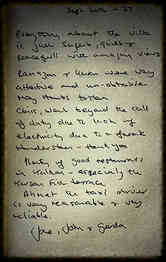 Sept 20th - 27
Everything about the villa
is just superb, quiet &
peaceful with amazing views
& Karen were very
attentive and un-obtrusive
Many thanks
Chris, went beyond the call
of duty due to lack of
electricity due to a freak
thunderstorm - thank you
Plenty of good restaurants
in Kalkan - especially the
Kursan Fish terrace
Ahmet the taxi driver
is very reasonable & very
reliable.
Jane, John &